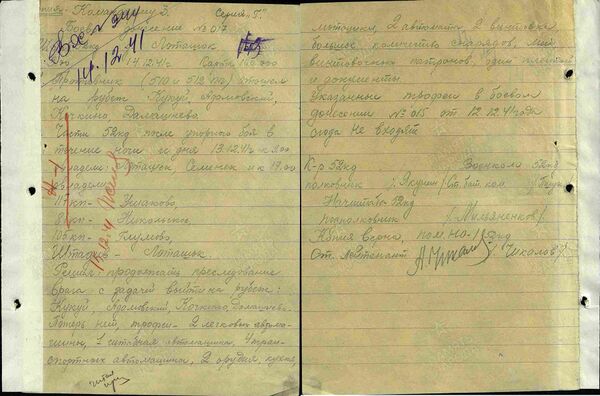 Копия. Командующему 3. Серия "Г".
Боевое донесение № 017
Вх № 911
14.12.41
Штадив 52кд Моташок
14.12.41г Карта 100.000
Противник (510 и 512 пп) отошел
на рубеж Кукуй, Адамовский,
Кочкино, Далматнево.
Части 52кд после упорного боя в
течение ночи и дня 13.12.41г к 8.00
овладели: Моташок, Семенек и к 19.00
овладели:
117 кп - Ушаково,
кп - Никольское,
105 кп - Глумово,
Штадив - Моташок.
Решил: продолжать преследование
врага с задачей выйти на рубеж:
Кукуй, Адамовский, Кочкино,
Потерь нет, трофеи - 2 легковых автома-
шины, 1 штабная автомашина, 4 тран-
спортных автомашины, 2 орудия, кухня,
мотошука, 2 автомата, 2 винтовки
большое количество снарядов, мин,
винтовочных патронов, один пленный
и документы.
Указанные трофеи в боевом
донесении № 015 от 12.12.41 года
сюда не входят.
К-р 52кд Военком 52кд
полковник /Якунин/ Ст. бат. ком
Начштадив 52кд
подполковник /Мильяненков/
Копия верна, пом. на-
Ст. лейтенант /Чикалов/